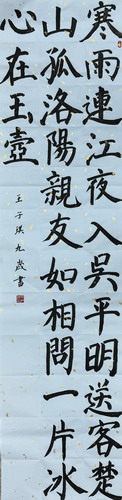 寒雨連江夜入吳平明送客楚
山孤洛陽親友如相問一片冰
心在玉壺
王子琪九歲書